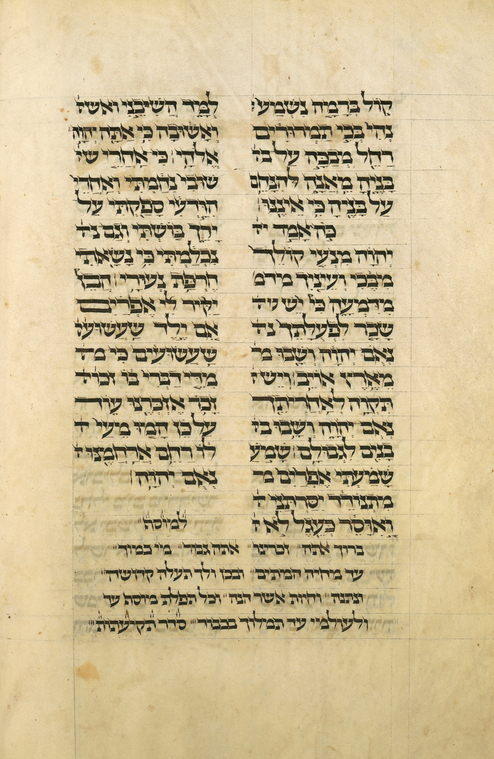 קול ברמה נשמע
נהי בכי תמרורים
רחל מבכה על ב
בניה מאנה להנחם
על בניה כי איננו
כה אמר י
יהוה מנעי קולך
מבכי ועיניך מדמ
מדמעה כי יש ש
שכר לפעלתך נ
נאם יהוה ושבו מ
מארץ אויב ויש
תקוה לאחריתך
נאם יהוה ושבו ב
בנים לגבולם שמע
שמעתי אפרים מ
מתנודד יסרתני
ואוסר כעגל לא
למד השיבני ואש
ואשובה כי אתה יהוה
אלהי כי אחרי ש
שובי נחמתי ואחרי
הודעי ספקתי על
ירך בושתי וגם נ
נכלמתי כי נשאתי
חרפת נעורי הבן
יקיר לי אפרים
אם ילד שעשועי
שעשועים כי מ
מדי דברי בו ז
זכר אזכרנו עוד
על כן המו מעי
לו רחם ארחמנו
נאם יהוה
למוסף
ברוך אתה זכרנו אתה גבור מי כמוך
עד מחיה המתים ובכן ולך תעלה קדושה
וחיות אשר הנה וכל תפלת מוסף עד
ולעולמי עד תמלוך בכבוד סדר